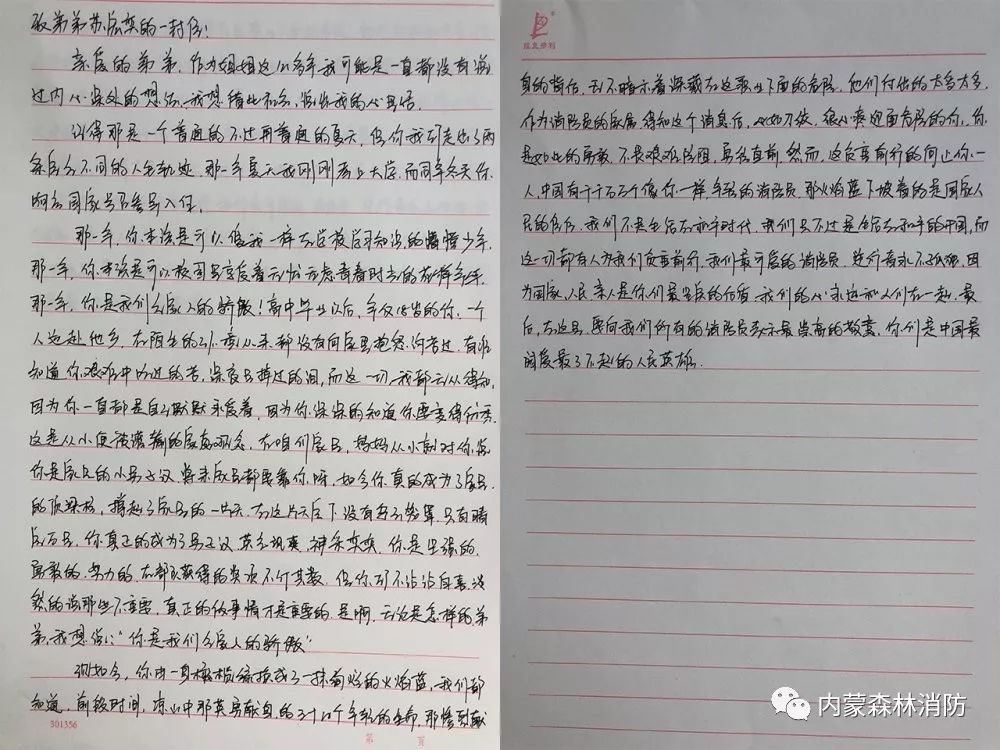 致弟弟苏宏奕的一封信:
亲爱的弟弟,作为姐姐这么多年我可能是一直都没有说
过内心深处的想法,我想借此机会,说出我的心里话。
记得那是一个普通的不过再普通的夏天,但你我却走出了两
条完全不同的人生轨迹,那一年夏天我刚刚考上大学,而同年冬天你
响应国家号召参军入伍。
那一年,你本该是可以像我一样在学校启知识的懵懂少年,
那一年,你本该是可以校园里享受着无忧无虑青春时光的花样年华,
那一年,你是我们全家人的骄傲!高中毕业以后,年仅18岁的你,一个
人远赴他乡,在陌生的环境从来都没有向家里抱怨,诉苦过,有谁
知道你艰难中吃过的苦,深夜里掉过的泪,而这一切,我都无从得知,
因为你一直都是自己默默承受着,因为你深深的知道你要变得优秀
这是从小便被灌输的家庭观念,在咱们家里,妈妈从小就对你说
你是家里的小男子汉,将来家里都要靠你呀,如今你真的成为了家里
的顶梁柱,撑起了家里的一片天,在这片天空下没有再有
你真正的成为了男子汉,英姿飒爽,神采奕奕,你是坚强的,
勇敢的,努力的,在部队获得的奖项不计其数,但你却不沾沾自喜,淡
然的说那些不重要,真正的做事情才是重要的,是啊,无论是怎样的弟
弟,我想说:“你是我们全家人的骄傲”
现如今,你由一身橄榄绿换成了一抹绚烂的火焰蓝,我们都
知道,前段时间,凉山中那英勇献身的31个年轻的生命,那惨烈献
301356
第 页
身的背后,无不暗示着深藏在这职业下面的危险,他们付出的太多太多,
作为消防员的家属,得知这个消息后,心如刀绞,很心疼迎面危险的你,你
是如此的勇敢,不畏艰难险阻,勇往直前,然而,这负重前行的何止你一
人,中国有千千万万个像你一样年轻的消防员,那火焰蓝下披着的是国家人
民的责任,我们不是生活在和平时代,我们只不过是生活在和平的中国,而
这一切都有人为我们负重前行,我们最可爱的消防员,逆行者永不孤独,因
为国家,人民,亲人是你们最坚实的后盾,我们的心永远和你们在一起,最
后,在这里,要向我们所有的消防员表示最崇高的敬意,你们是中国最
闪耀最了不起的人民英雄.
内蒙森林消防